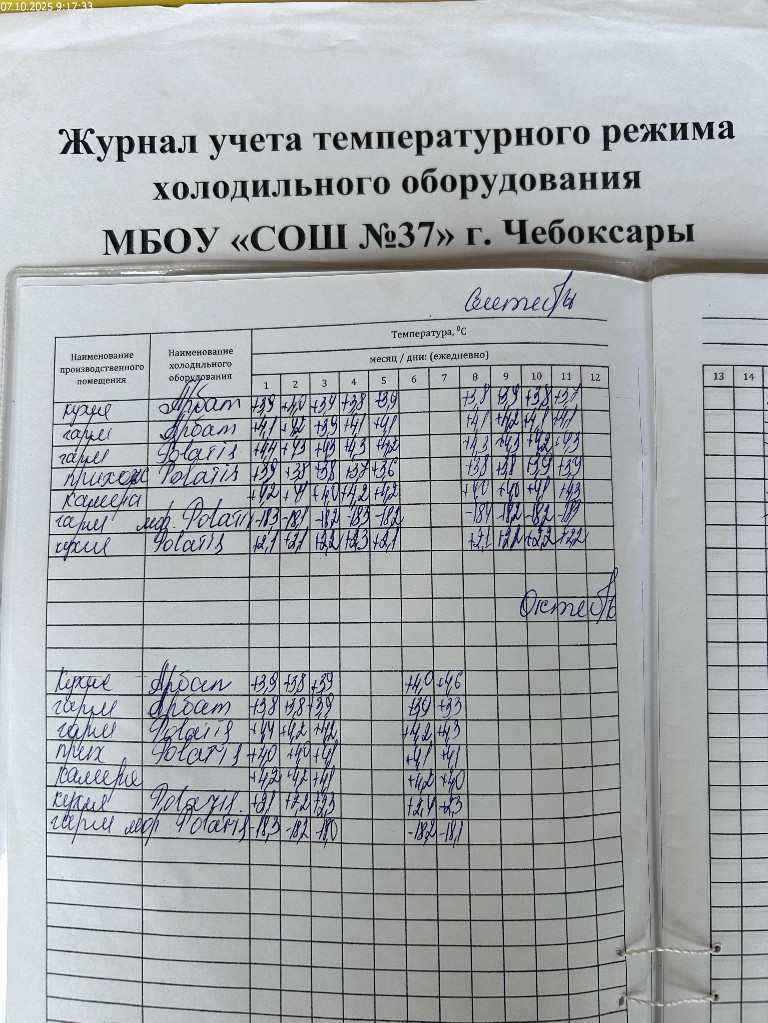 07.10.2025 9:17:33
Журнал учета температурного режима
холодильного оборудования
МБОУ «СОШ №37» г. Чебоксары
Наименование производственного помещения
Наименование холодильного оборудования
Температура, ⁰С
месяц / дни: (ежедневно)
1 2 3 4 5 6 7 8 9 10 11 12 13 14
кухня Арбат +3,9 +4,0 +3,9 +3,8 +3,9 +3,8 +3,9 +3,8 +3,7
гарм Арбат +4,1 +4,2 +3,9 +4,1 +4,1 +4,1 +4,2 +4,1 +4,1
гарм Polatis +4,4 +4,3 +4,3 +4,3 +4,2 +4,3 +4,3 +4,2 +4,3
Polatis +3,9 +3,8 +3,8 +3,7 +3,6 +3,8 +3,8 +3,9 +3,9
камера +4,2 +4,1 +4,0 +4,2 +4,2 +4,0 +4,0 +4,1 +4,3
гарм мор. Polatis -18,3 -18,1 -18,2 -18,3 -18,2 -18,2 -18,2
кухня Polatis +2,1 +2,1 +2,2 +2,3 +2,1 +2,1 +2,2 +2,2
Кухня Арбат +3,9 +3,8 +3,9 +4,0 +4,6
гарм Арбат +3,8 +3,8 +3,9 +3,9 +3,3
гарм Polatis +4,4 +4,2 +4,2 +4,2 +4,3
прих Polatis +4,0 +4,0 +4,1 +4,1 +4,1
Камера +4,2 +4,2 +4,1 +4,2 +4,0
кухня Polatis +2,1 +2,2 +2,3 +2,1 +2,3
гарм мор. Polatis -18,3 -18,2 -18,0 -18,2 -18,1